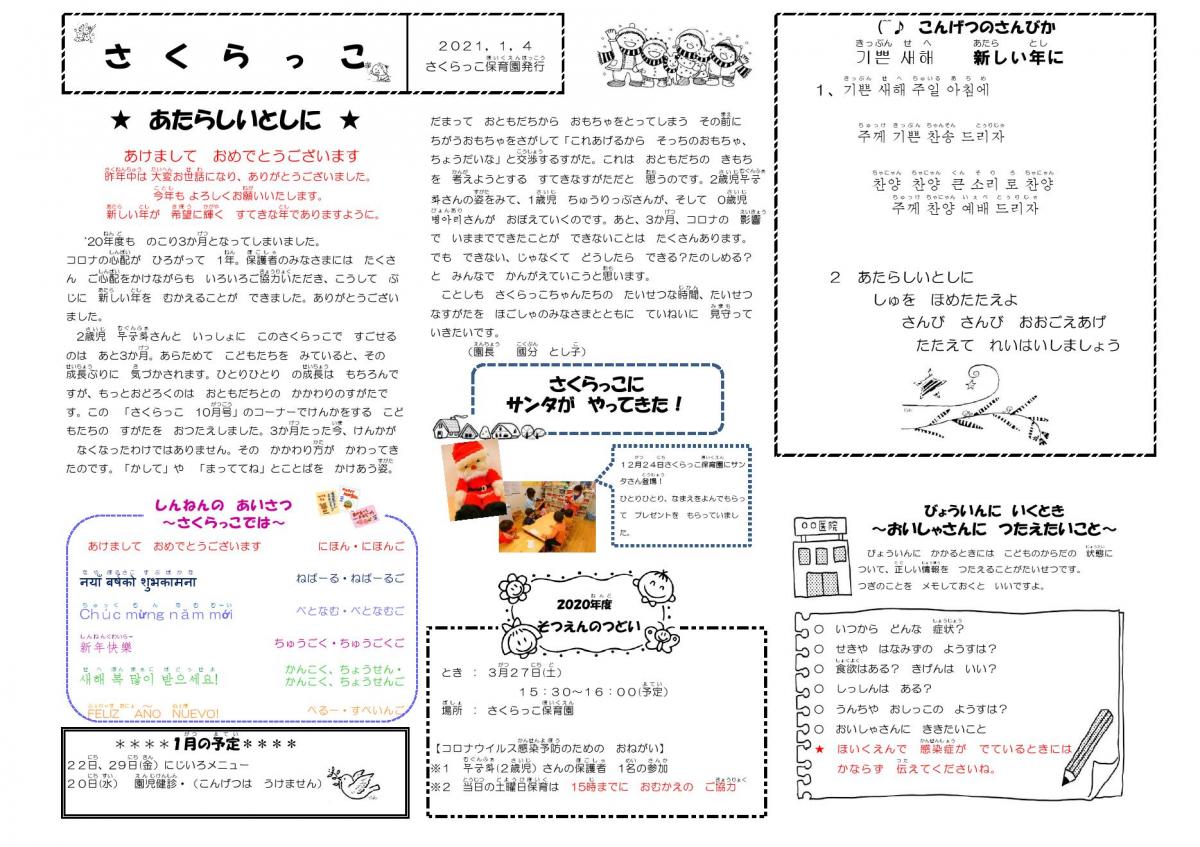 さくらっこ
2021．1．4
さくらっこ保育園発行
★ あたらしいとしに ★
あけまして おめでとうございます
昨年中は 大変お世話になり、ありがとうございました。
今年も よろしくお願いいたします。
新しい年が 希望に輝く すてきな年でありますように。
'20年度も のこり3か月となってしまいました。
コロナの心配が ひろがって 1年。保護者のみなさまには たくさ
ん ご心配をかけながらも いろいろご協力いただき、こうして ぶ
じに 新しい年を むかえることが できました。ありがとうござい
ました。
2歳児 무궁화さんと いっしょに このさくらっこで すごせる
のは あと3か月。あらためて こどもたちを みていると、その
成長ぶりに 気づかされます。ひとりひとり の成長は もちろんで
すが、もっとおどろくのは おともだちとの かかわりのすがたで
す。この 「さくらっこ 10月号」のコーナーでけんかをする こど
もたちの すがたを おつたえしました。3か月たった今、けんかが
なくなったわけではありません。その かかわり方が かわってき
たのです。「かして」や 「まっててね」とことばを かけあう姿。
だまって おともだちから おもちゃをとってしまう その前に
ちがうおもちゃをさがして「これあげるから そっちのおもちゃ、
ちょうだいな」と交渉するすがた。これは おともだちの きもち
を 考えようとする すてきなすがただと 思うのです。2歳児무궁
화さんの姿をみて、1歳児 ちゅうりっぷさんが、そして 0歳児
병아리さんが おぼえていくのです。あと、3か月、コロナの 影響
で いままでできたことが できないことは たくさんあります。
でも できない、じゃなくて どうしたら できる？たのしめる？
と みんなで かんがえていこうと思います。
ことしも さくらっこちゃんたちの たいせつな時間、たいせつ
なすがたを ほごしゃのみなさまとともに ていねいに 見守って
いきたいです。
（園長 國分 とし子）
さくらっこに
サンタが やってきた！
12月24日さくらっこ保育園にサン
タさん登場！
ひとりひとり、なまえをよんでもらっ
て プレゼントを もらっていまし
た。
しんねんの あいさつ
～さくらっこでは～
あけまして おめでとうございます にほん・にほんご
नयाँ बर्षको शुभकामना ねぱーる・ねぱーるご
Chúc mừng năm mới べとなむ・べとなむご
新年快樂 ちゅうごく・ちゅうごくご
새해 복 많이 받으세요! かんこく、ちょうせん・
かんこく、ちょうせんご
FELIZ AÑO NUEVO! ぺるー・すぺいんご
＊＊＊＊1月の予定＊＊＊＊
22日、29日(金) にじいろメニュー
20日(水) 園児健診・（こんげつは うけません）
2020年度
そつえんのつどい
とき ： 3月27日(土)
15：30～16：00(予定)
場所 ： さくらっこ保育園
【コロナウイルス感染予防のための おねがい】
※1 무궁화(2歳児) さんの保護者 1名の参加
※2 当日の土曜日保育は 15時までに おむかえの ご協力
♪ こんげつのさんびか
기쁜 새해 新しい年に
1、기쁜 새해 주일 아침에
주께 기쁜 찬송 드리자
찬양 찬양 큰 소리 로 찬양
주께 찬양 예배 드리자
2 あたらしいとしに
しゅを ほめたたえよ
さんび さんび おおごえあげ
たたえて れいはいしましょう
○○医院
びょういんに いくとき
～おいしゃさんに つたえたいこと～
びょういんに かかるときには こどものからだの 状態に
ついて、正しい情報を つたえることがたいせつです。
つぎのことを メモしておくと いいですよ。
○ いつから どんな 症状？
○ せきや はなみずの ようすは？
○ 食欲はある？ きげんは いい？
○ しっしんは ある？
○ うんちや おしっこの ようすは？
○ おいしゃさんに ききたいこと
★ ほいくえんで 感染症が でているときには
かならず 伝えてくださいね。